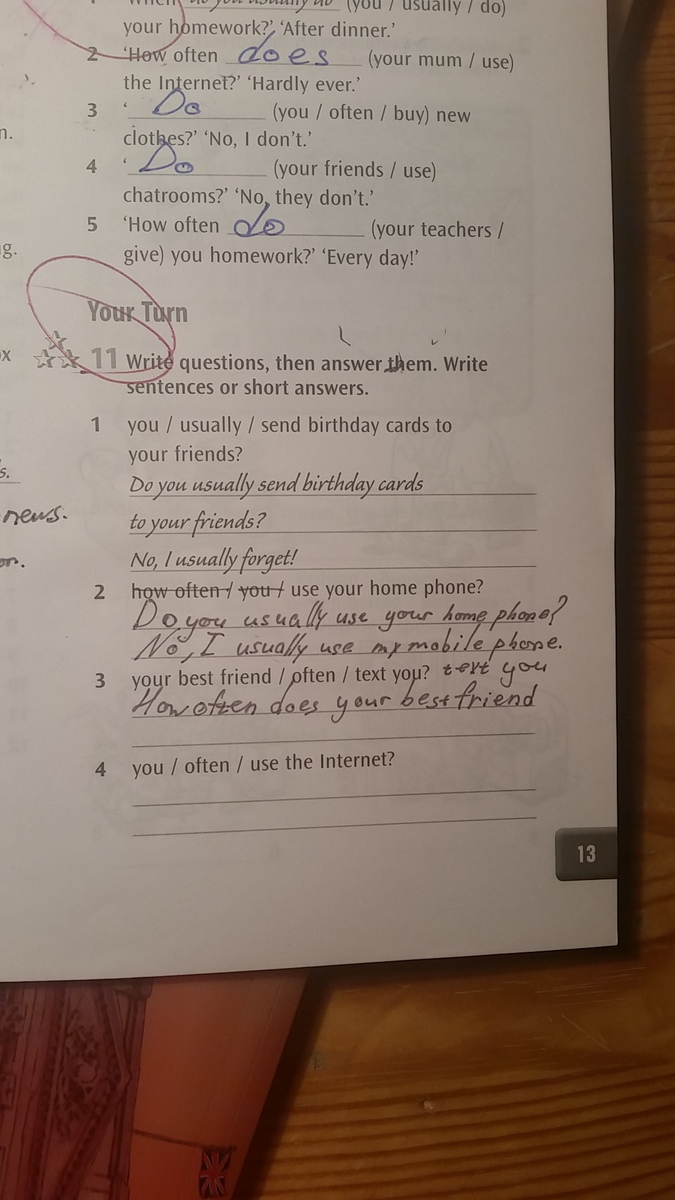 When do you usually do (you / usually / do)
your homework?' 'After dinner.'
2 'How often does (your mum / use)
the Internet?' 'Hardly ever.'
3 ' Do (you / often / buy) new
clothes?' 'No, I don't.'
4 ' Do (your friends / use)
chatrooms?' 'No, they don't.'
5 'How often do (your teachers /
give) you homework?' 'Every day!'
Your Turn
11 Write questions, then answer them. Write
sentences or short answers.
1 you / usually / send birthday cards to
your friends?
Do you usually send birthday cards
to your friends?
No, I usually forget!
2 how often / you / use your home phone?
Do you usually use your home phone?
No, I usually use my mobile phone.
3 your best friend / often / text you? text you
How often does your best friend
4 you / often / use the Internet?
13
n.
g.
ox
s.
news.
on.